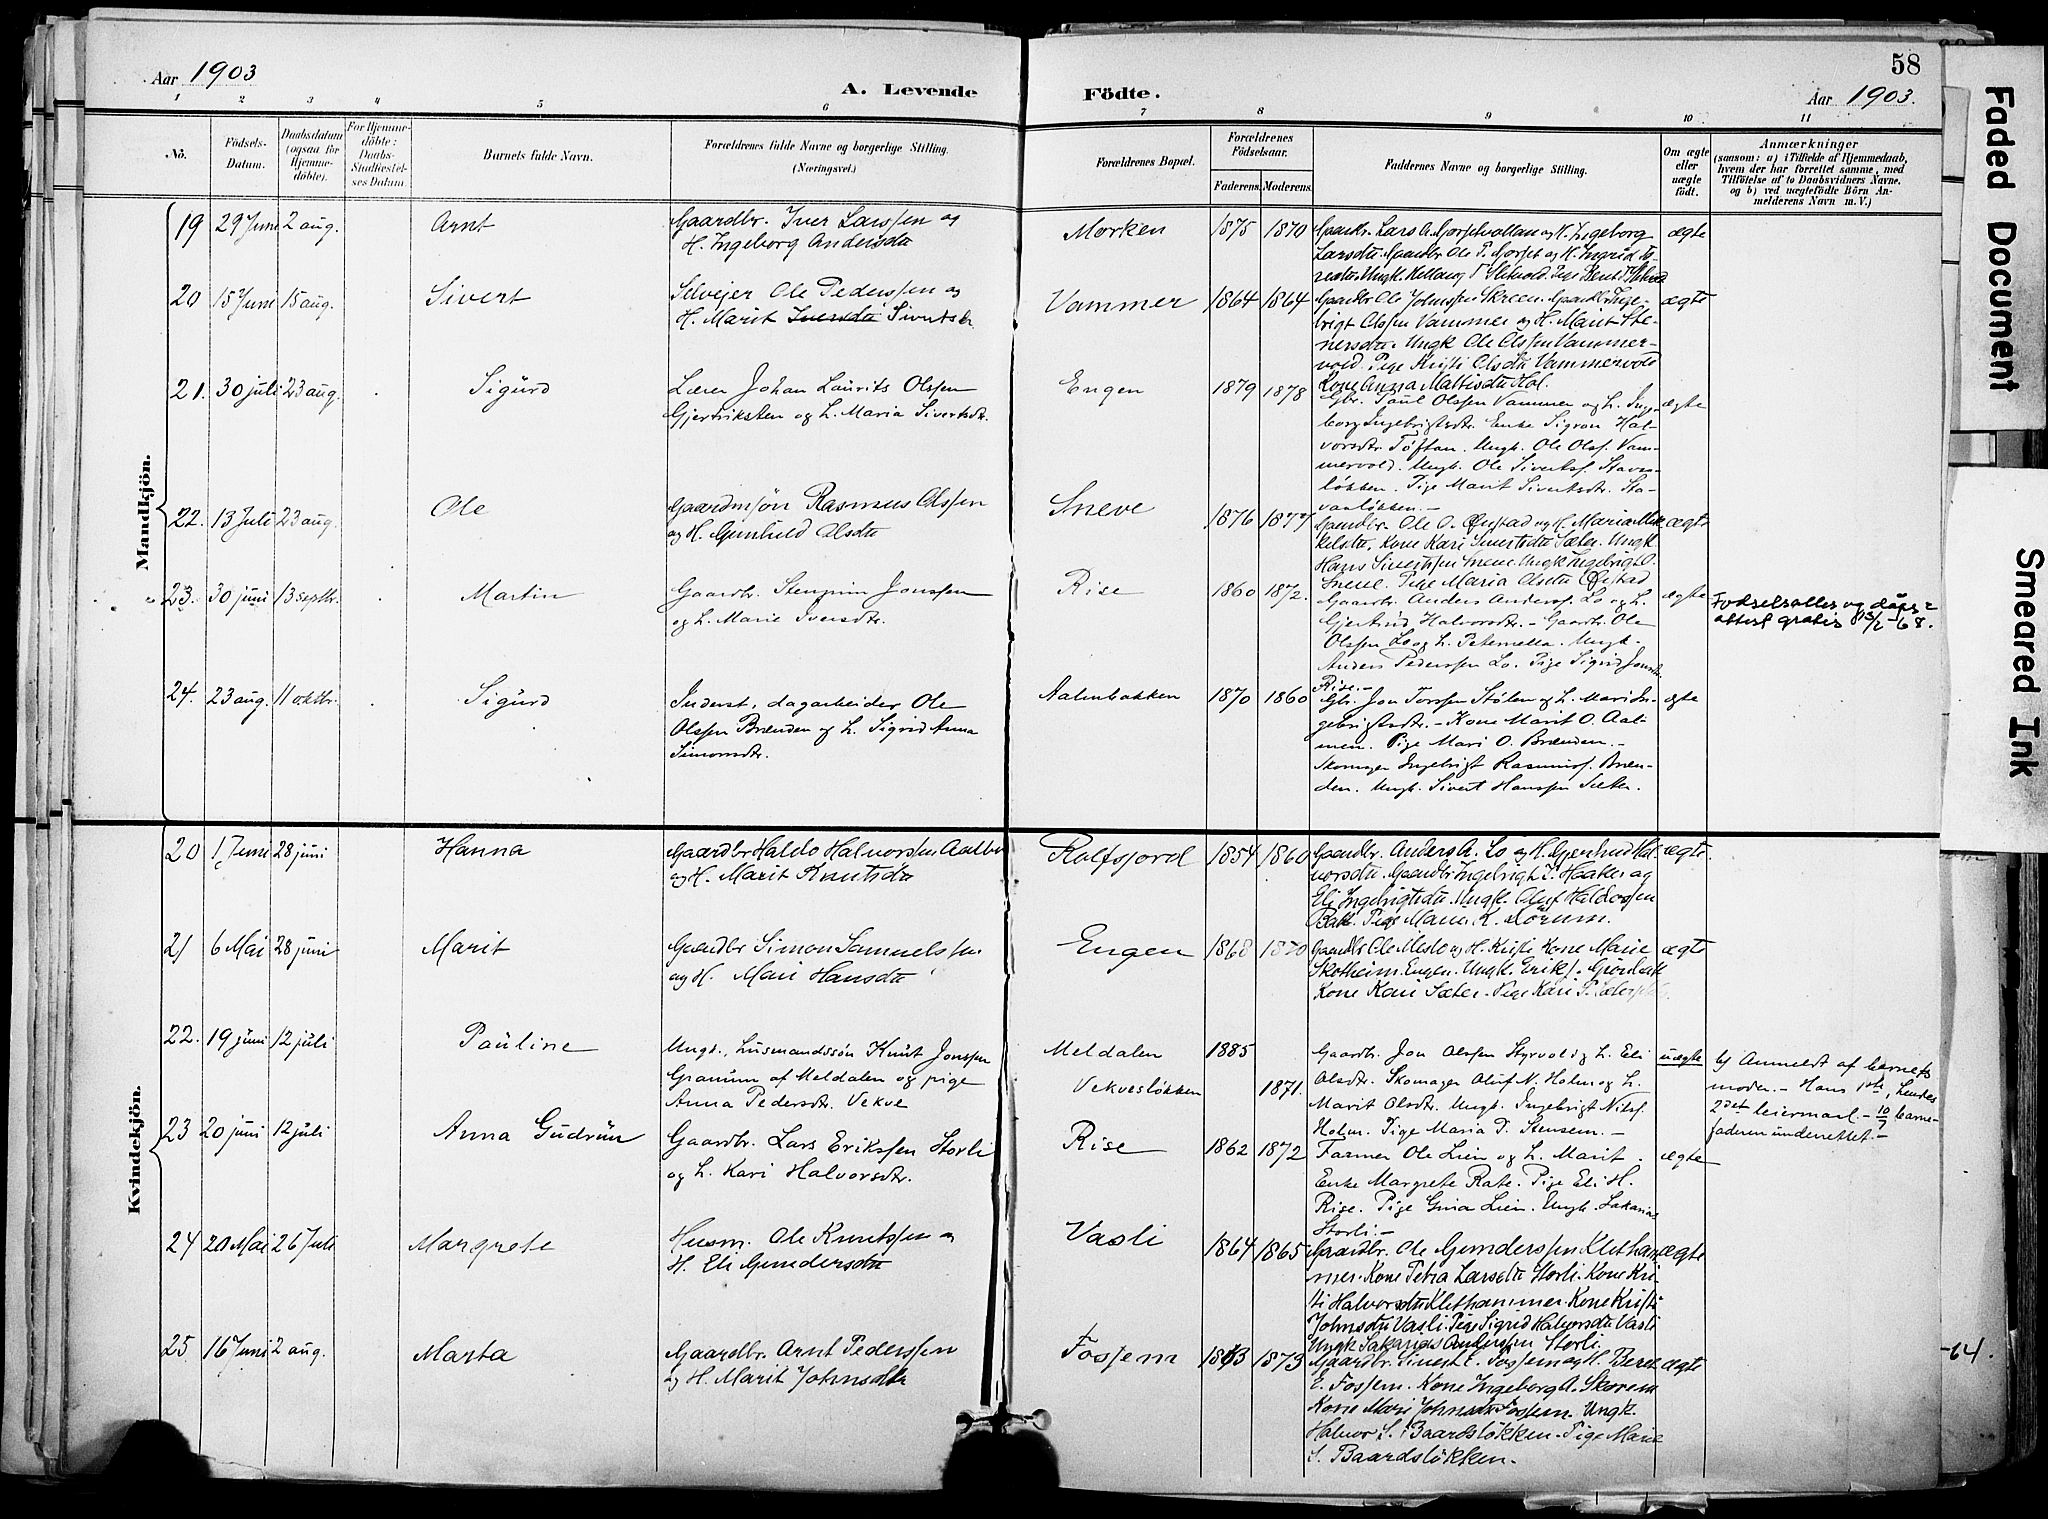 Aar 1903
A. Levende Födte.
58
Aar 1903.
1 2 3 4 5 6 7 8 9 10 11
No.
Födsels-Datum.
Daabsdatum (ogsaa for Hjemmedöbte).
For Hjemmedöbte: Daabs-Stadfæstelses Datum.
Barnets fulde Navn.
Forældrenes fulde Navne og borgerlige Stilling. (Næringsvei.)
Forældrenes Bopæl.
Forældrenes Födselsaar.
Faderens. Moderens.
Faddernes Navne og borgerlige Stilling.
Om ægte eller uægte födt.
Anmærkninger
(saasom: a) i Tilfælde af Hjemmedaab, hvem der har forrettet samme, med Tilföielse af to Daabsvidners Navne, og b) ved uægtefödte Börn Anmelderens Navn m. V.)
Mandkjön.
19 29 Juni 2 aug. Arnt
Gaardbr. Iver Larssen og
H. Ingeborg Andersdtr
Morken 1875 1870
Gaardbr. Lars A. Gorsetvollan og H. Ingeborg
Larsdtr. Gaardbr Ole P. Gorset og H. Ingrid
ægte
20 15 Juni 15 aug. Sivert
Selvejer Ole Pederssen og
H. Marit Iversdtr Sivertsdtr
Vammer 1864 1864
Gaardbr Ole Johnssen Skreen. Gaardbr Inge-
brigt Olssen Vammer og H. Marit Ste-
nersdtr. Ungk Ole Olssen Vammer-
vold. Pige Kristi Olsdtr Vammervold
Kone Anna Mattisdtr Hol.
ægte
21. 30 juli 23 aug. Sigurd
Lærer Johan Laurits Olssen
Gjertriksten og h. Maria Sivertsdtr.
Engen 1879 1878
Gbr. Paul Olssen Vammer og h. Inge-
borg Ingebrigtsdtr. Enke Sigrou Hal-
vorsdtr Töftan. Ungk. Ole Olsf. Vam-
mervold. Ungk. Ole Sivertsf. Stavs-
løkken. Pige Marit Sivertsdtr. Sta-
vsløkken.-
ægte
22. 13 Juli 23 aug. Ole
Gaardmsøn Rasmus Olssen
og H. Gunhild Olsdtr
Sneve 1876 1877
Gaardbr. Ole O. Øistad og H. Maria Mik-
kelsdtr. Kone Kari Sivertsdtr Sæter. Ungk
Hans Sivertssen Sneve. Ungk Ingebrigt O.
Sneve. Pige Maria Olsdtr Øistad
ægte
23. 30 juni 13 septbr. Martin
Gaardbr. Stengrim Jonssen
og h. Marie Iversdtr.
Rise 1860 1872.
Gaardbr. Anders Andersf. Lo og h.
Gjertrud Halvorsdtr. - Gaardbr. Ole
Olssen Lo og h. Peternella. Ungk.
Anders Pederssen Lo. Pige Sigrid Jonsdtr.
Rise.-
ægte
Fødselsattes og dåps-
attest gratis 13/2-68.
24. 23 aug. 11 oktbr. Sigurd
Inderst, dagarbeider Ole
Olssen Brænden og h. Sigrid Anna
Simonsdtr.
Aalmbakken 1870 1860
Gbr. Jon Torssen Stølen og h. Mari In-
gebrigtsdtr. - Kone Marit O. Aal-
men. Pige Mari O. Brænden.-
Skomager Ingebrigt Rasmusf. Bræn-
den. Ungk. Sivert Hanssen Sæter.
ægte
Kvindekjön.
20 1 Juni 28 juni Hanna
Gaardbr Haldo Halvorssen Aalbu
og H. Marit Knutsdtr
Rolfsjord 1854 1860
Gaardbr. Anders A. Lo og H. Gjertrud Hal-
vorsdtr. Gaardbr Ingebrigt I. Haaker og
Eli Ingebrigtsdtr. Ungk. Oluf Haldossen
Bakk. Pige Marit K. Dörum.
ægte.
21 6 Mai 28 juni Marit
Gaardbr Simon Samuelssen
og H. Mari Hansdtr
Engen 1868 1870
Gaardbr Ole Meslo og H. Kristi Kone Marie
Skotheim Engen. Ungk. Erik J. Gjørdbakk
Kone Kari Sæter. Pige Kari P.
ægte
22. 19 juni 12 juli Pauline
Ungk., husmandssøn Knut Jonssen
Granum af Meldalen og pige
Anna Pedersdtr. Vekve
Meldalen 1885
Vekvesløkken 1871.
Gaardbr. Jon Olssen Styrvold og h. Eli
Olsdtr. Skomager Oluf N. Holm og h.
Marit Olsdtr. Ungk. Ingebrigt Nilsf.
Holm. Pige Maria T. Stensem.-
uægte
b) Anmeldt af barnets
moder. - Hans 1ste, hendes
2det leiermaal. - 10/7 barne-
faderen underrettet.-
23 20 juni 12 juli Anna Gudrun
Gaardbr. Lars Erikssen Storli
og h. Kari Halvorsdtr.
Rise 1862 1872
Farmer Ole Lien og h. Marit.
Enke Margrete Rate. Pige Eli H.
Rise. Pige Gina Lien. Ungk. Sakarias
Storli.-
ægte
24 20 Mai 26 Juli Margrete
Husm. Ole Knutssen og
H. Eli Gundersdtr
Vasli 1864 1865
Gaardbr. Ole Gunderssen Kletham-
mer. Kone Petra Larsdtr Storli. Kone Kri-
sti Halvorsdtr Klethammer. Kone Kristi
Johnsdtr Vasli. Pige Sigrid Halvorsdtr Vasli
Ungk Sakarias Anderssen Storli
ægte
25. 16 Juni 2 aug. Marta
Gaardbr. Arnt Pederssen
og H. Marit Johnsdtr
Fossem 1873
Gaardbr. Sivert E. Fossem og H. Beret
E. Fossem. Kone Ingeborg A. Skorem
Kone Mari Johnsdtr Fossem. Ungk.
Halvor S. Baardsløkken. Pige Marie
S. Baardsløkken.-
ægte
-64.
Faded Document
Smeared Ink